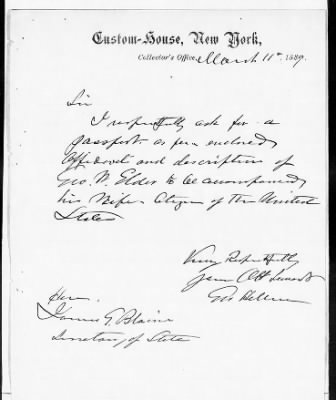 Custom-House, New York,
Collector's Office, March 11th 1889
Sir
I respectfully ask for a
passport as per enclosed
Affidavit and description of
Geo. W. Elder to be accompanied
his Wife - Citizen of the United
States
Very Respectfully
Your Obt Servant
Geo
Hon.
James G. Blaine
Secretary of State